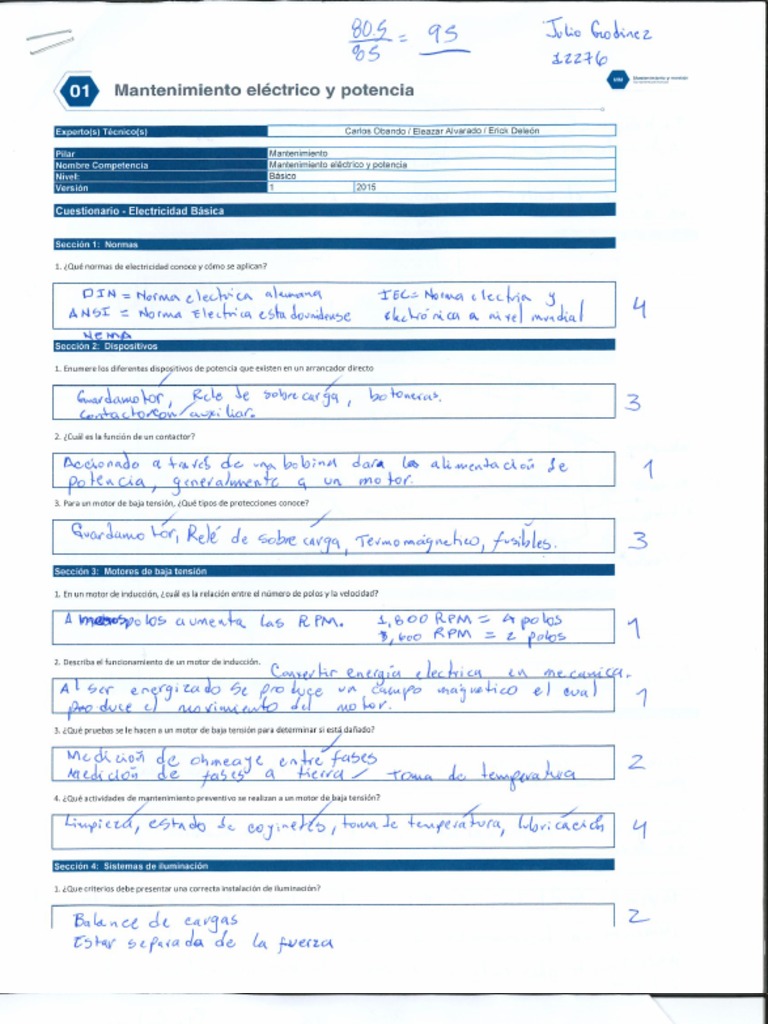 80.5
85 = 95
Julio Godinez
12276
01 Mantenimiento eléctrico y potencia
Experto(s) Técnico(s) Carlos Obando / Eleazar Alvarado / Erick Deleón
Pilar Mantenimiento
Nombre Competencia Mantenimiento eléctrico y potencia
Nivel: Básico
Versión 1 2015
Cuestionario - Electricidad Básica
Sección 1: Normas
1. ¿Qué normas de electricidad conoce y cómo se aplican?
DIN = Norma electrica alemana IEC = Norma electria y
ANSI = Norma Electrica estadounidense electrónica a nivel mundial 4
NEMA
Sección 2: Dispositivos
1. Enumere los diferentes dispositivos de potencia que existen en un arrancador directo
Guardamotor, Rele de sobre carga, botoneras. 3
contactor con auxiliar.
2. ¿Cuál es la función de un contactor?
Accionado a través de una bobina dara la alimentación de 1
potencia, generalmente a un motor.
3. Para un motor de baja tensión, ¿Qué tipos de protecciones conoce?
Guardamotor, Relé de sobre carga, Termomágnetico, fusibles. 3
Sección 3: Motores de baja tensión
1. En un motor de inducción, ¿cuál es la relación entre el número de polos y la velocidad?
A menos polos aumenta las RPM. 1,800 RPM = 4 polos 1
3,600 RPM = 2 polos
2. Describa el funcionamiento de un motor de inducción. Convertir energía electrica en mecanica.
Al ser energizado se produce un campo magnetico el cual 1
produce el movimiento del motor.
3. ¿Qué pruebas se le hacen a un motor de baja tensión para determinar si está dañado?
Medición de ohmeaje entre fases 2
Medición de fases a tierra / toma de temperatura
4. ¿Qué actividades de mantenimiento preventivo se realizan a un motor de baja tensión?
Limpieza, estado de coginetes, toma de temperatura, lubricación 4
Sección 4: Sistemas de iluminación
1. ¿Que criterios debe presentar una correcta instalación de iluminación?
Balance de cargas 2
Estar separada de la fuerza